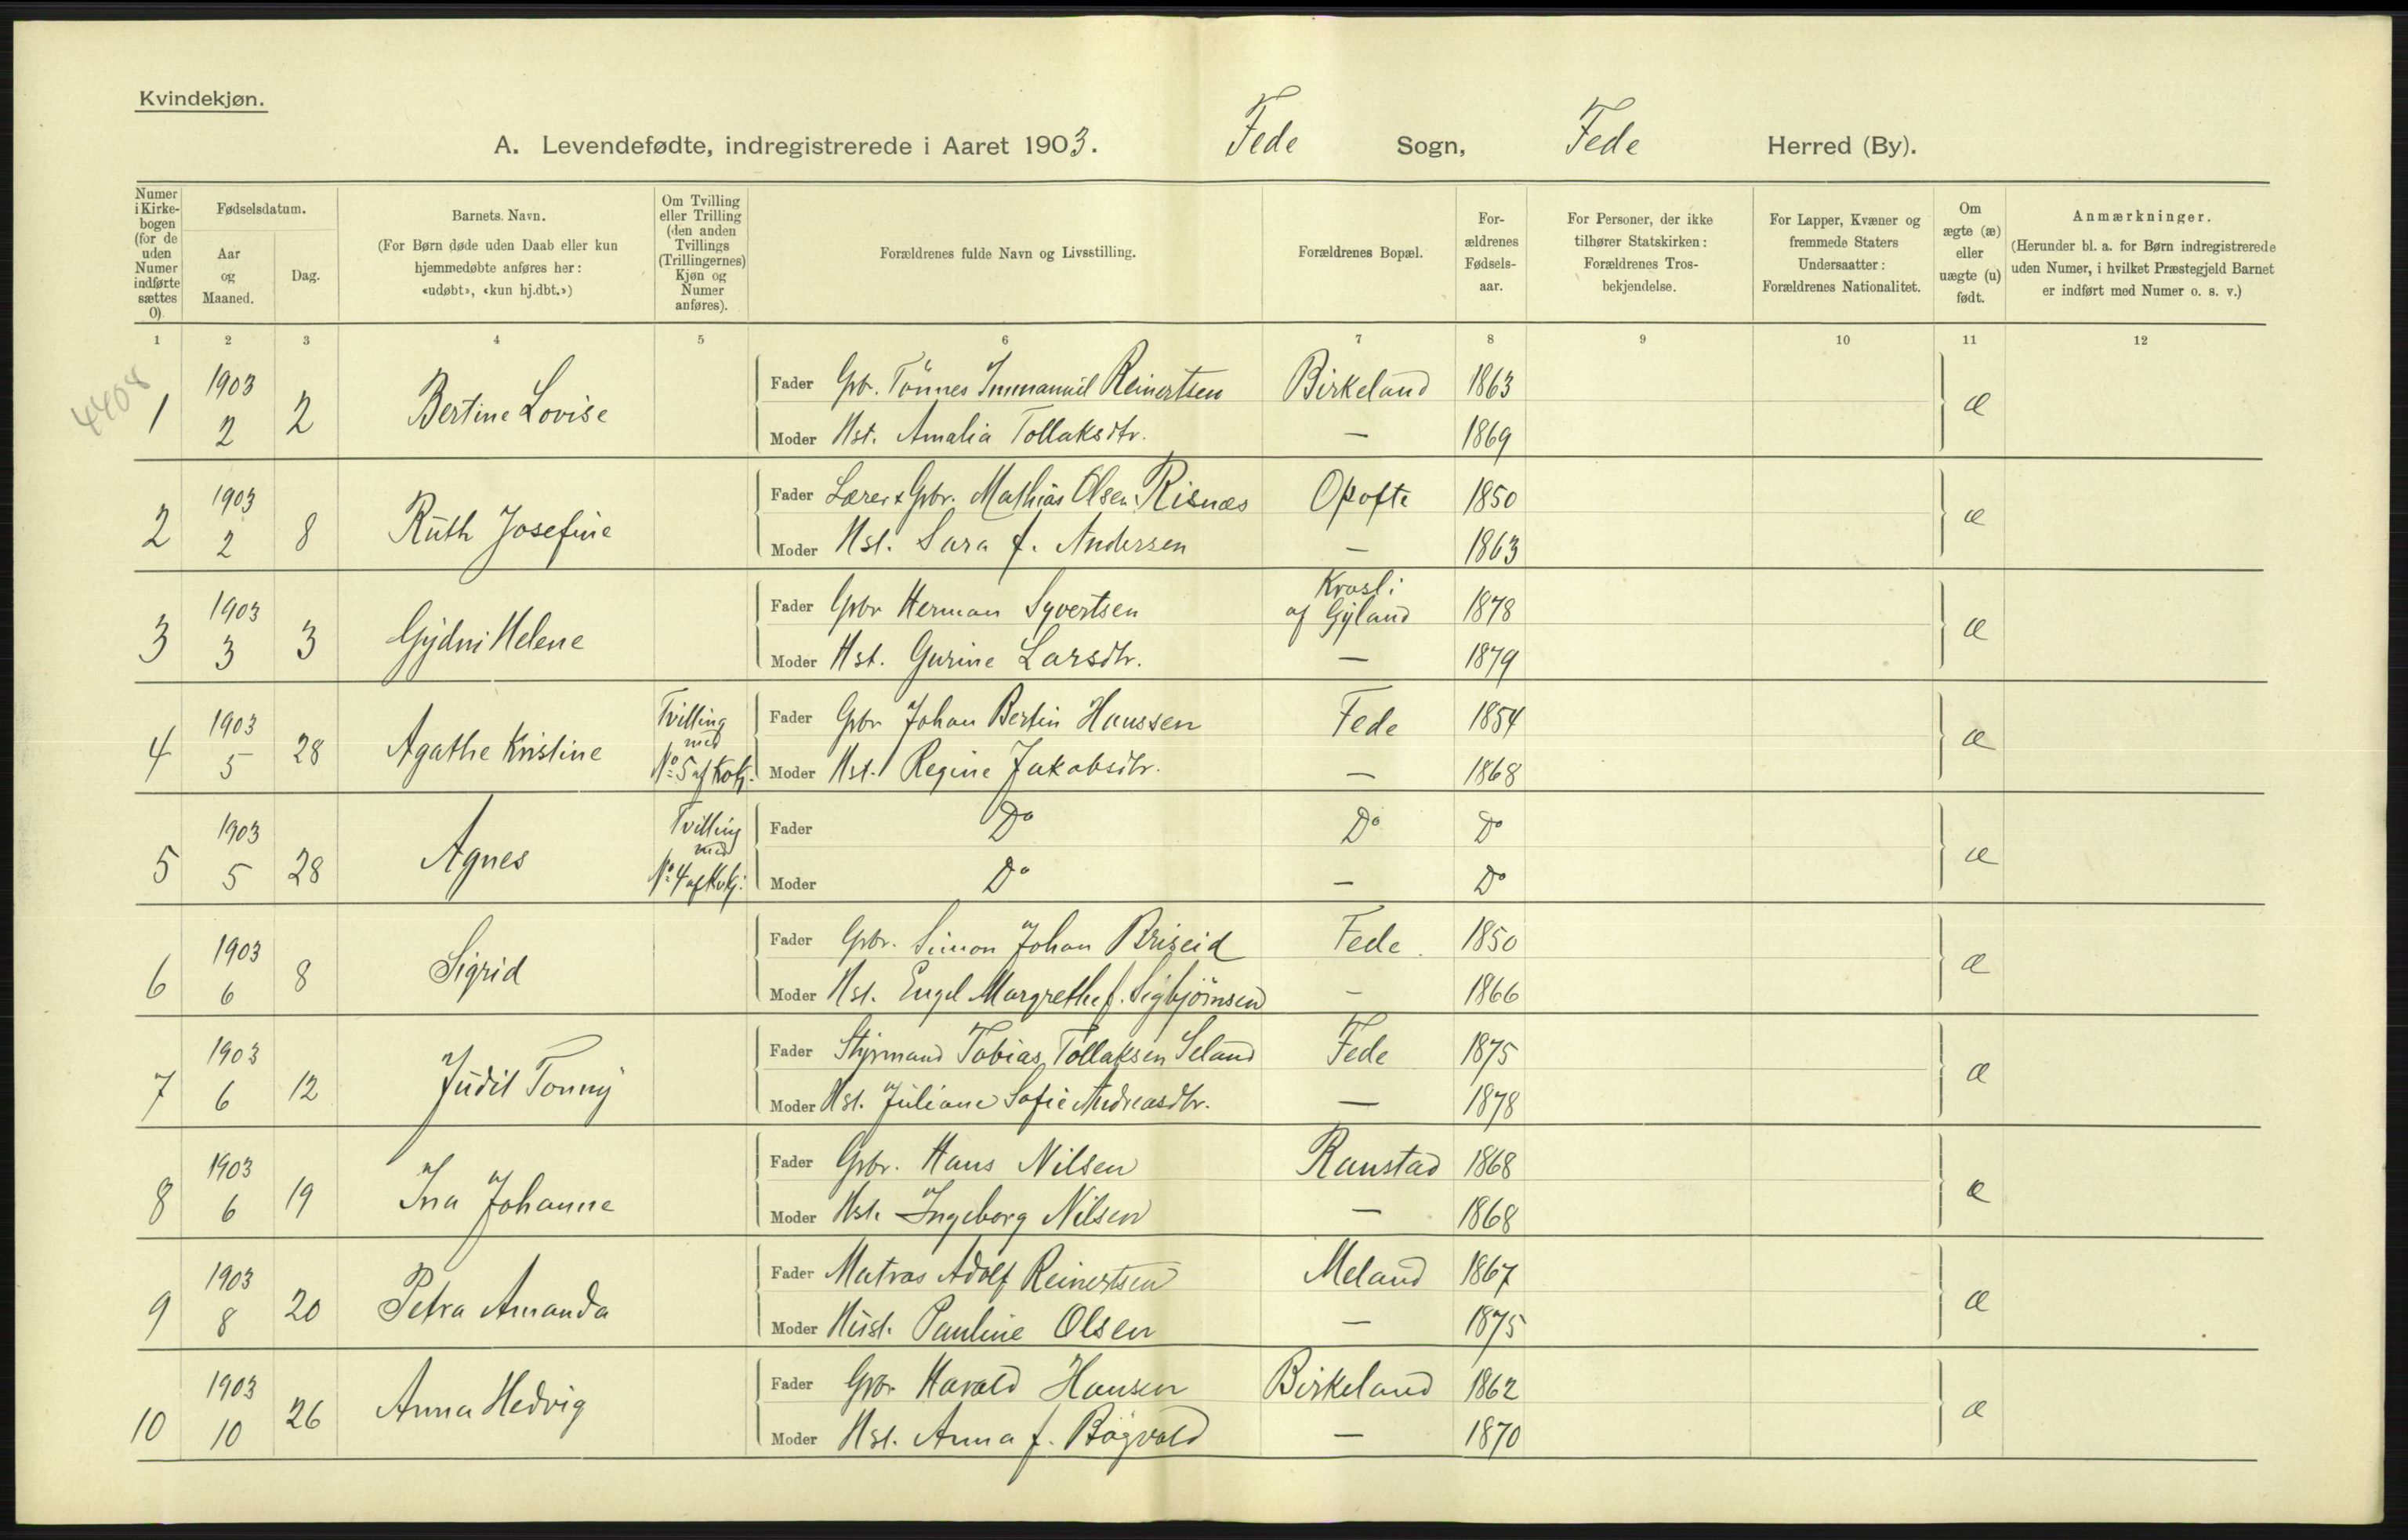 Kvindekjøn.
A. Levendefødte, indregistrerede i Aaret 1903. Fede Sogn, Fede Herred (By).
Numer i Kirkebogen (for de uden Numer indførte sættes 0)
Fødselsdatum.
Aar og Maaned.
Dag.
Barnets Navn.
(For Børn døde uden Daab eller kun hjemmedøbte anføres her: «udøbt», «kun hj.dbt.»)
Om Tvilling eller Trilling (den anden Tvillings (Trillingernes) Kjøn og Numer anføres).
Forældrenes fulde Navn og Livsstilling.
Forældrenes Bopæl.
Forældrenes Fødselsaar.
For Personer, der ikke tilhører Statskirken: Forældrenes Trosbekjendelse.
For Lapper, Kvæner og fremmede Staters Undersaatter: Forældrenes Nationalitet.
Om ægte (æ) eller uægte (u) født.
Anmærkninger.
(Herunder bl. a. for Børn indregistrerede uden Numer, i hvilket Præstegjeld Barnet er indført med Numer o. s. v.)
1 2 3 4 5 6 7 8 9 10 11 12
4408
1 1903 2 2 Bertine Lovise Fader Gbr. Tönnes Immanuel Reinertsen Birkeland 1863 æ
Moder Hst. Amalia Tollaksdtr. — 1869
2 1903 2 8 Ruth Josefine Fader Lærer & Gbr. Mathias Olsen Risnæs Opofte 1850 æ
Moder Hst. Sara f. Andersen — 1863
3 1903 3 3 Gydni Helene Fader Gbr Herman Syvertsen Krosli af Gyland 1878 æ
Moder Hst. Gurine Larsdtr. — 1879
4 1903 5 28 Agathe Kristine Tvilling med No 5 af Kvkj. Fader Gbr Johan Bertin Hanssen Fede 1854 æ
Moder Hst. Regine Jakobsdtr. — 1868
5 1903 5 28 Agnes Tvilling med No 4 af Kvkj. Fader Do Do Do æ
Moder Do — Do
6 1903 6 8 Sigrid Fader Gbr. Simon Johan Briseid Fede. 1850 æ
Moder Hst. Engel Margrethe f. Sigbjörnsen — 1866
7 1903 6 12 Judit Tonny Fader Styrmand Tobias Tollaksen Seland Fede 1875 æ
Moder Hst. Juliane Sofie Andreasdtr. — 1878
8 1903 6 19 Ina Johanne Fader Gbr. Hans Nilsen Ranstad 1868 æ
Moder Hst. Ingeborg Nilsen — 1868
9 1903 8 20 Petra Amanda Fader Matros Adolf Reinertsen Meland 1867 æ
Moder Hust. Pauline Olsen — 1875
10 1903 10 26 Anna Hedvig Fader Gbr Harald Hansen Birkeland 1862 æ
Moder Hst. Anna f. Bögvald — 1870